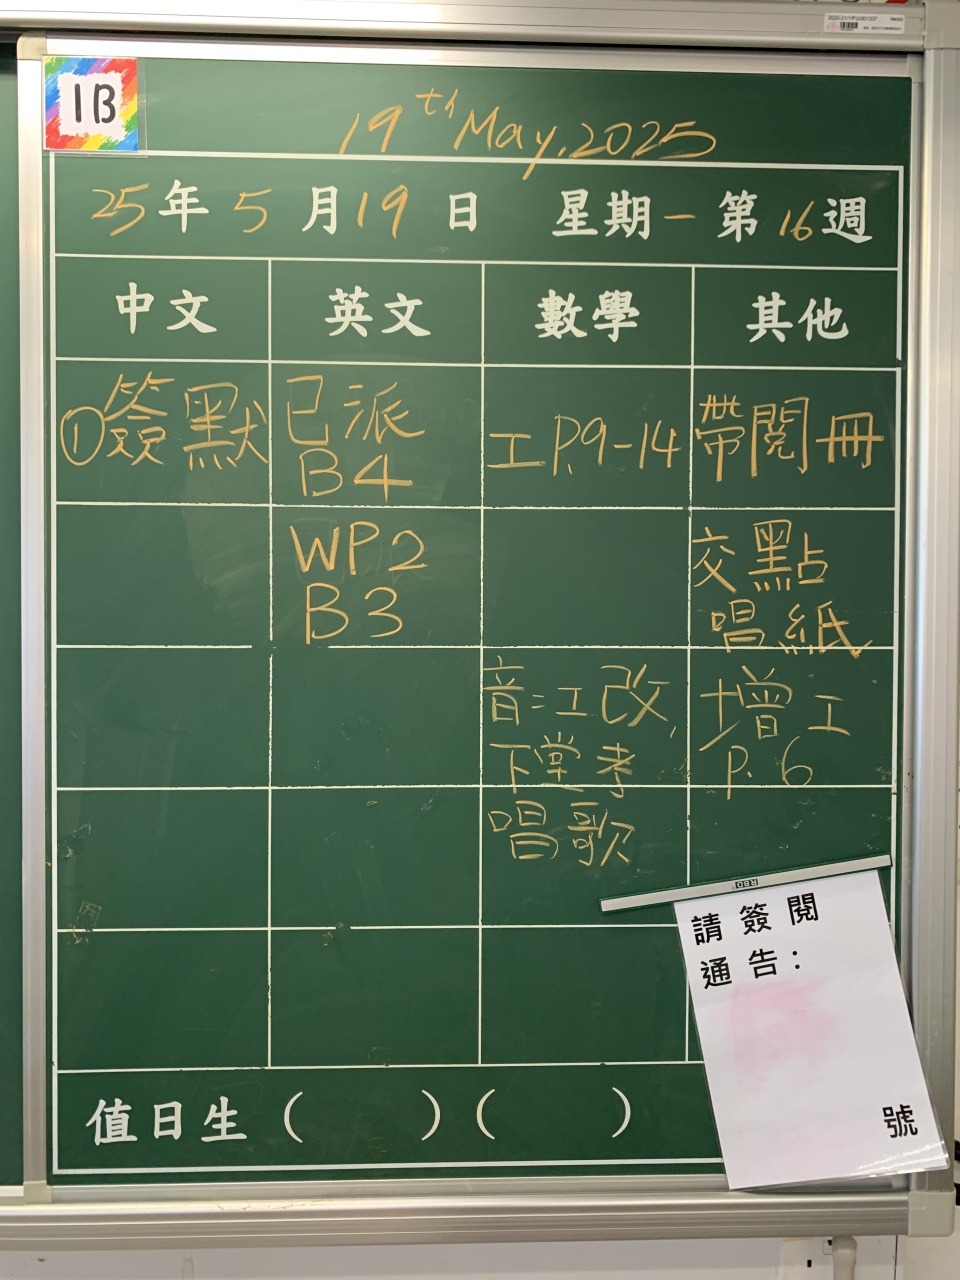 1B
19th May, 2025
25年5月19日 星期一 第16週
中文 英文 數學 其他
①簽默
已派
B4
工P.9-14
帶閱冊
WP2
B3
交點
唱紙
音=工改,
下堂考
唱歌
增工
P.6
RBD
請簽閱
通告：
號
值日生（ ）（ ）